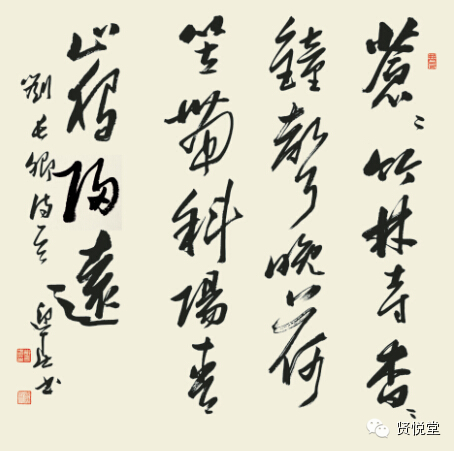 蒼〻竹林寺杳〻
鐘聲晚荷
笠帶斜陽青
山獨歸遠
劉長卿詩
書
贤悦堂